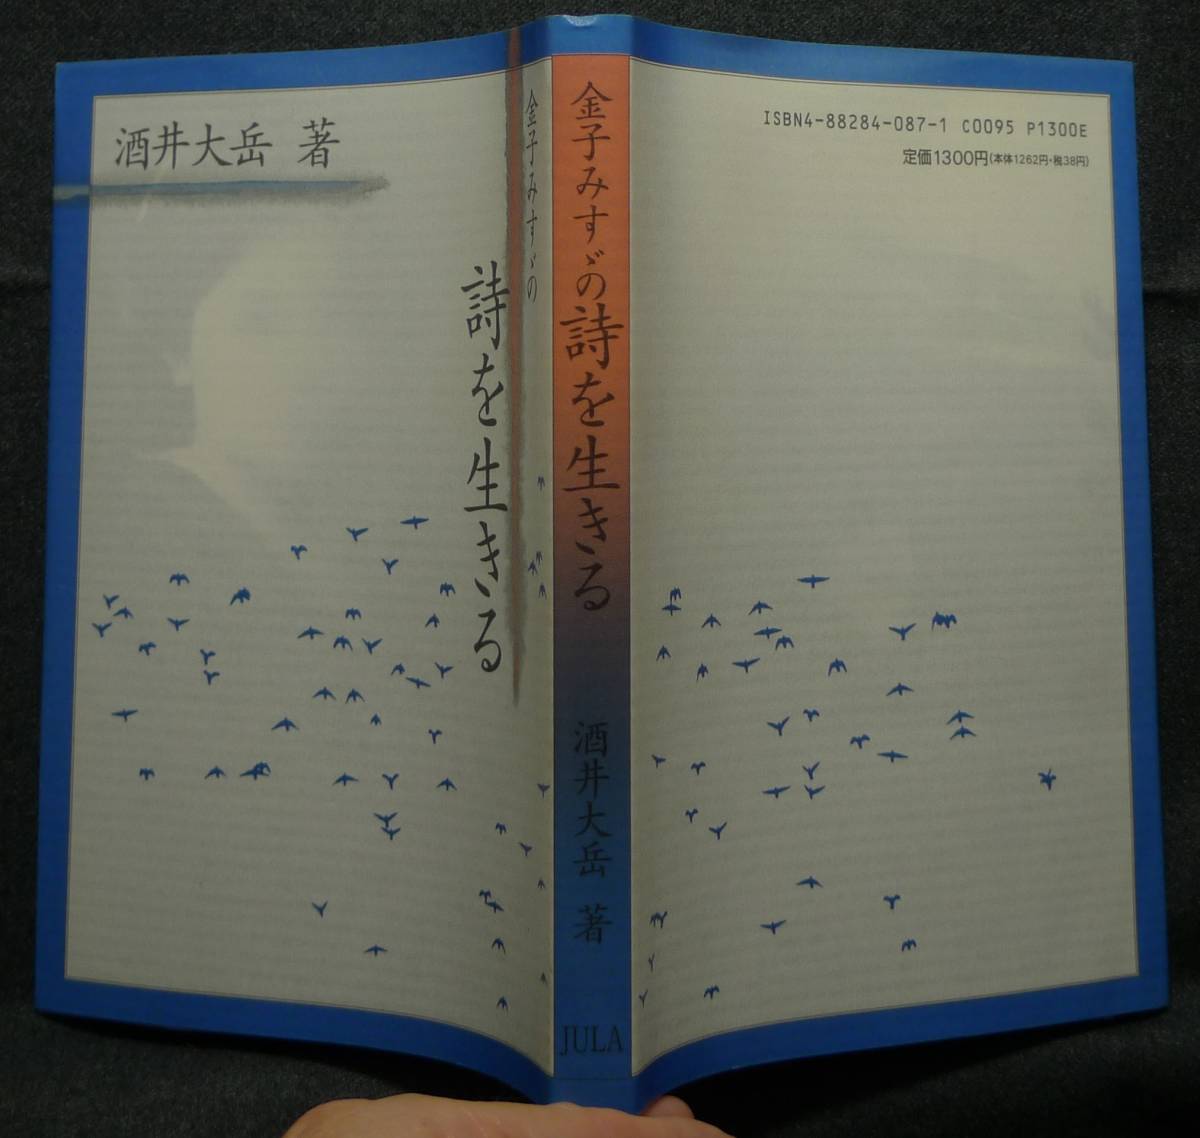 酒井大岳 著
金子みすゞの
詩を生きる
金子みすゞの詩を生きる
酒井大岳 著
JULA
ISBN4-88284-087-1 C0095 P1300E
定価1300円(本体1262円・税38円)